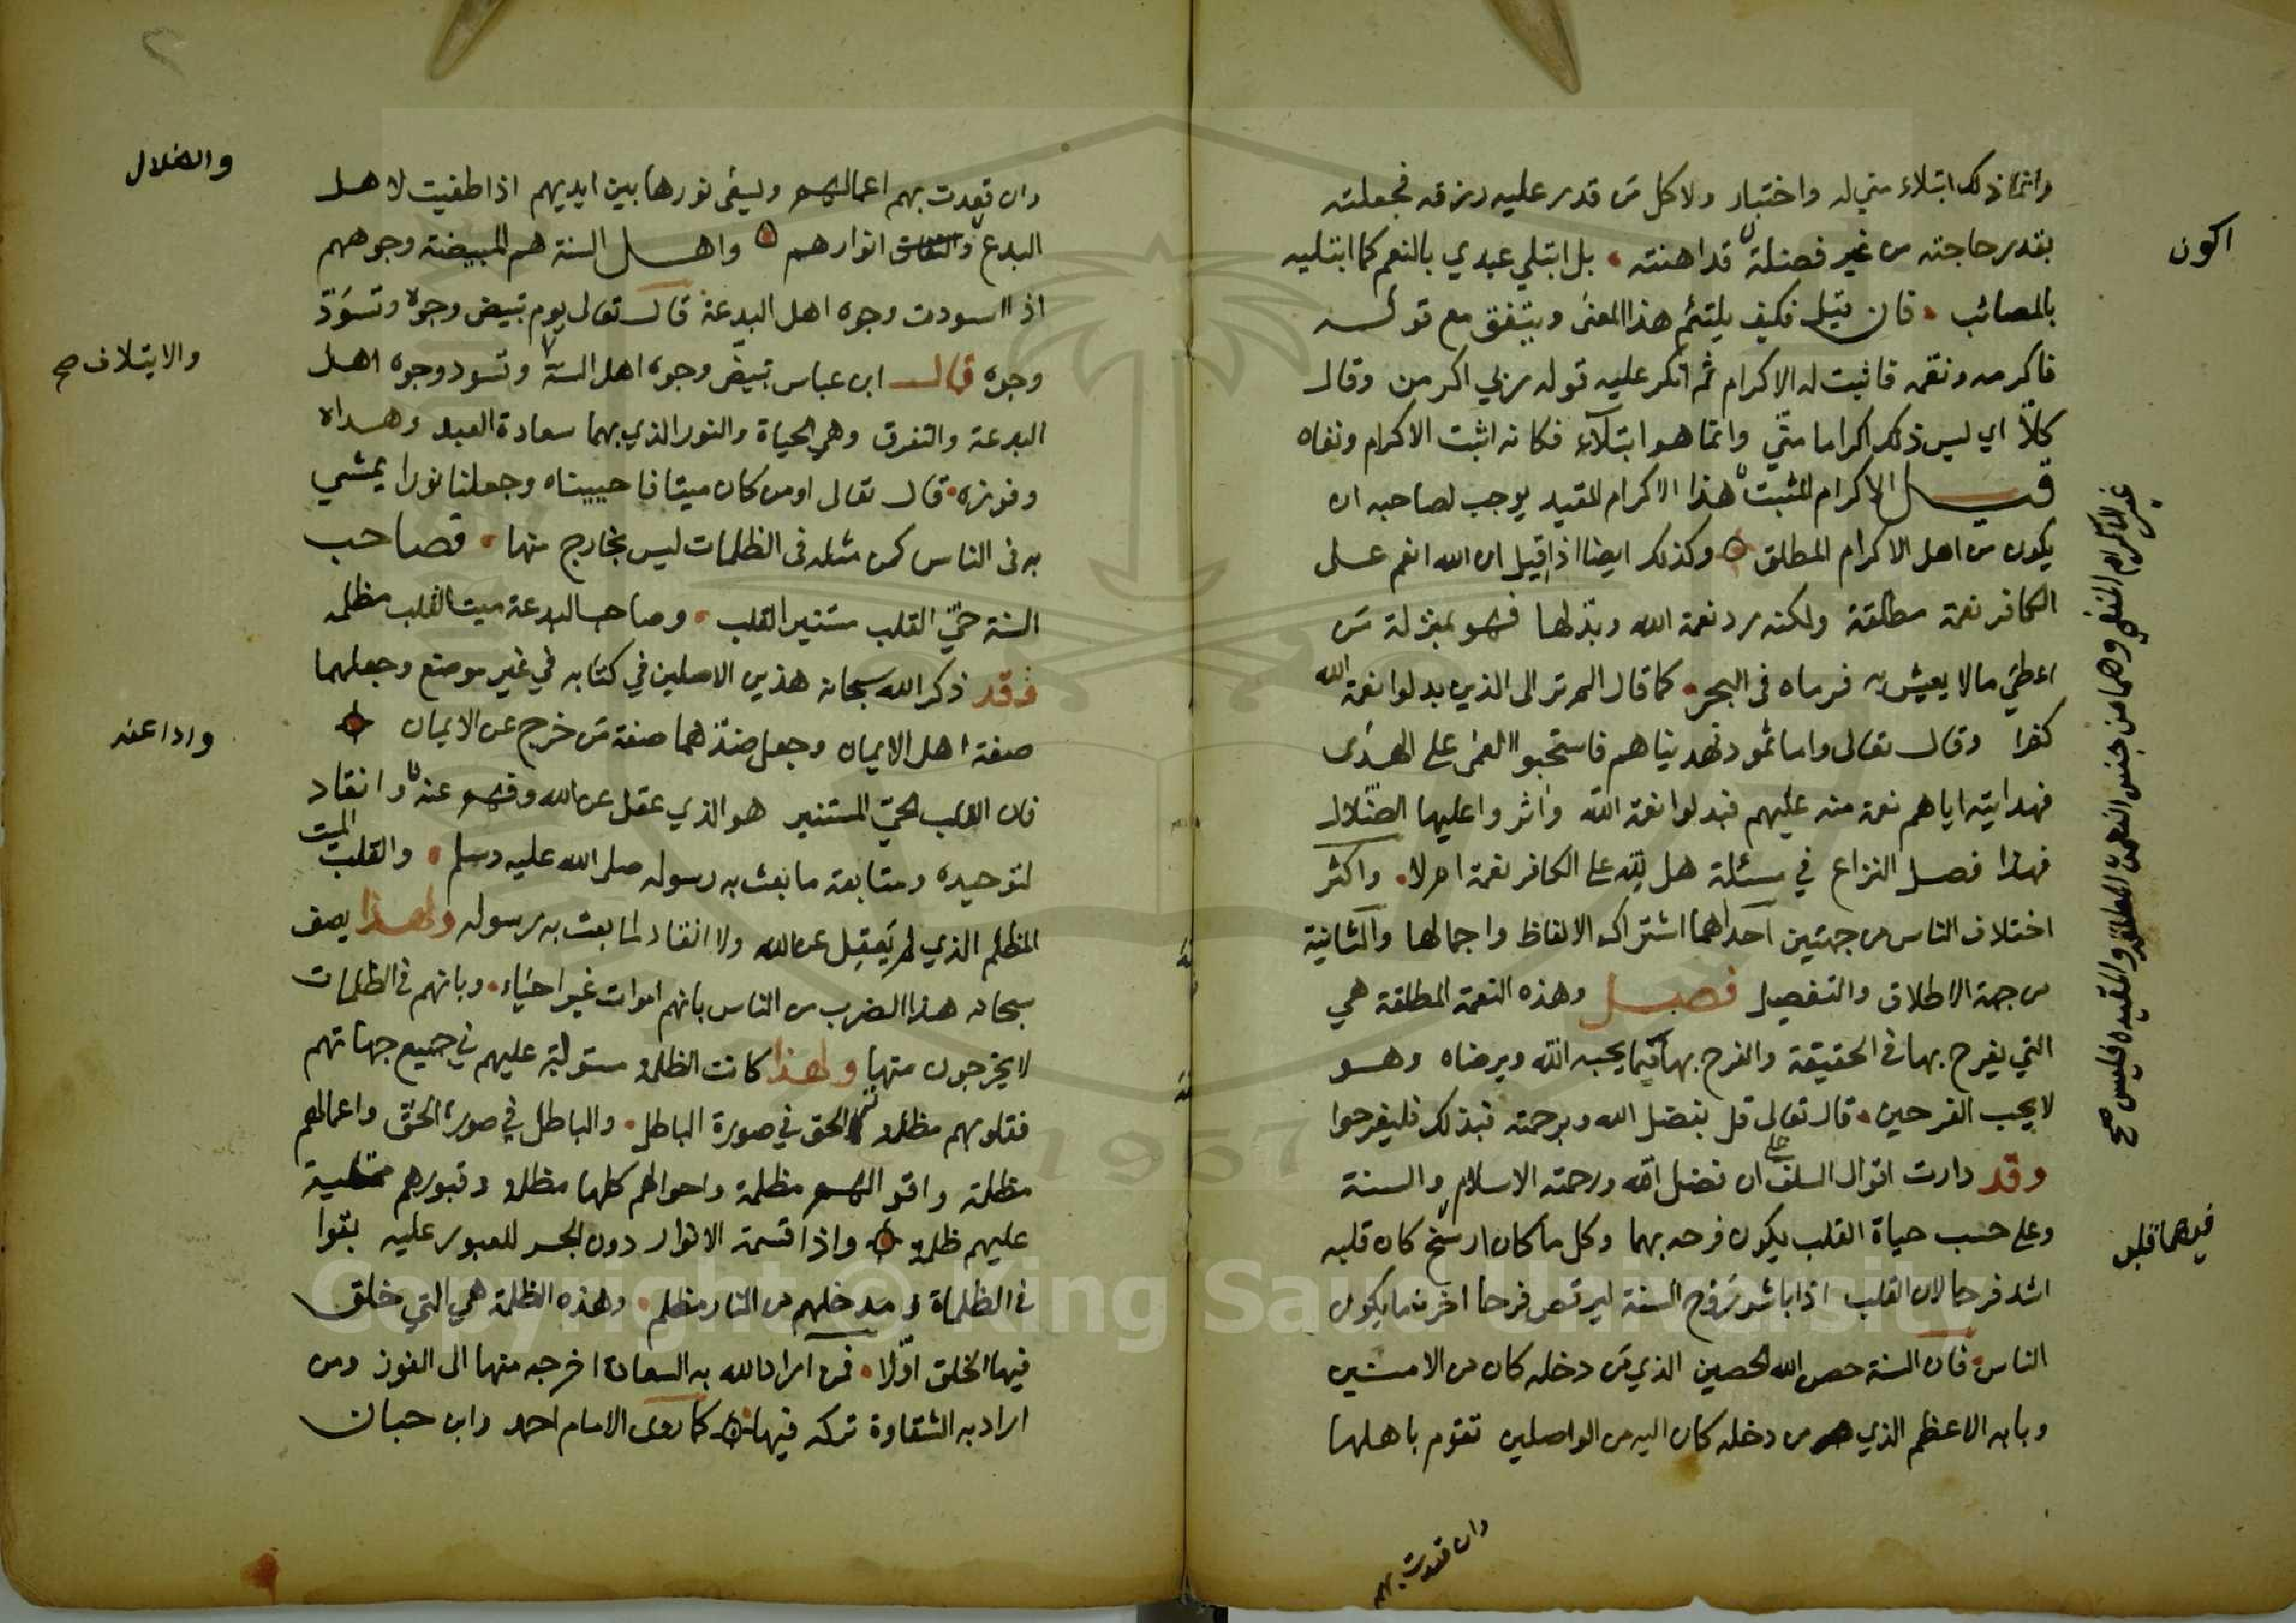 وانما ذلك ابتلاء مني له واختبار ولا كل من قدر عليه رزقه فجعلته
بقدر حاجته من غير فضلة قد اهنته بل ابتلي عبدي بالنعم كما ابتليه
اكون
بالمصائب فان قيل فكيف يلتئم هذا المعنى ويتفق مع قوله
فاكرمه ونعمه فاثبت له الاكرام ثم انكر عليه قوله ربي اكرمن وقال
كلا اي ليس ذلك اكراما مني وانما هو ابتلاء فكانه اثبت الاكرام ونفاه
قيل الاكرام المثبت هذا الاكرام المقيد يوجب لصاحبه ان
غير الاكرام المنفي وهما من جنس النعمة المطلقة والمقيدة فليس صح
يكون من اهل الاكرام المطلق وكذلك ايضا اذا قيل ان الله انعم على
الكافر نعمة مطلقة ولكنه رد نعمة الله وبدلها فهو بمنزلة من
اعطي مالا يعيش به فرماه في البحر كما قال الم تر الى الذين بدلوا نعمة الله
كفرا وقال تعالى واما ثمود فهديناهم فاستحبوا العمى على الهدى
فهدايته اياهم نعمة منه عليهم فبدلوا نعمة الله واثروا عليها الضلال
فهذا فصل النزاع في مسئلة هل لله على الكافر نعمة ام لا واكثر
اختلاف الناس من جهتين احداهما اشتراك الالفاظ واجمالها والثانية
من جهة الاطلاق والتفصيل فصل وهذه النعمة المطلقة هي
التي يفرح بها في الحقيقة والفرح بها مما يحبه الله ويرضاه وهو
لا يحب الفرحين قال تعالى قل بفضل الله وبرحمته فبذلك فليفرحوا
وقد دارت اقوال السلف على ان فضل الله ورحمته الاسلام والسنة
وعلى حسب حياة القلب يكون فرحه بهما وكل ما كان ارسخ كان قلبه
فيهما
اشد فرحا لان القلب اذا باشر روح السنة ليرقص فرحا احزن ما يكون
الناس فان السنة حصن الله الحصين الذي من دخله كان من الامنين
وبابه الاعظم الذي من دخله كان اليه من الواصلين تقوم باهلها
وان قعدت بهم
وان قعدت بهم اعمالهم ويسعى نورها بين ايديهم اذا طفيت لاهل
والضلال
البدع والنفاق انوارهم واهل السنة هم المبيضة وجوههم
اذا اسودت وجوه اهل البدعة قال تعالى يوم تبيض وجوه وتسود
وجوه قال ابن عباس تبيض وجوه اهل السنة وتسود وجوه اهل
والايتلاف صح
البدعة والتفرق وهي الحياة والنور الذي بهما سعادة العبد وهداه
وفوزه قال تعالى اومن كان ميتا فاحييناه وجعلنا نورا يمشي
به في الناس كمن مثله في الظلمات ليس بخارج منها فصاحب
السنة حي القلب مستنير القلب وصاحب البدعة ميت القلب مظلمه
وقد ذكر الله سبحانه هذين الاصلين في كتابه في غير موضع وجعلهما
صفة اهل الايمان وجعل ضدهما صفة من خرج عن الايمان
فان القلب الحي المستنير هو الذي عقل عن الله وفهم عنه وانقاد
لتوحيده ومتابعة ما بعث به رسوله صلى الله عليه وسلم والقلب الميت
المظلم الذي لم يعقل عن الله ولا انقاد لما بعث به رسوله ولهذا يصف
سبحانه هذا الضرب من الناس بانهم اموات غير احياء وبانهم في الظلمات
لا يخرجون منها ولهذا كانت الظلمة مستولية عليهم في جميع جهاتهم
فقلوبهم مظلمة الحق في صورة الباطل والباطل في صورة الحق واعمالهم
مظلمة واقوالهم مظلمة واحوالهم كلها مظلمة وقبورهم ممتلية
عليهم ظلمة واذا قسمت الانوار دون الجسر للعبور عليه بقوا
في الظلمات ومدخلهم من النار مظلم وهذه الظلمة هي التي خلق
فيها الخلق اولا فمن اراد الله به السعادة اخرجه منها الى الفوز ومن
اراد به الشقاوة تركه فيها كما روى الامام احمد وابن حبان
Copyright © King Saud University
1957